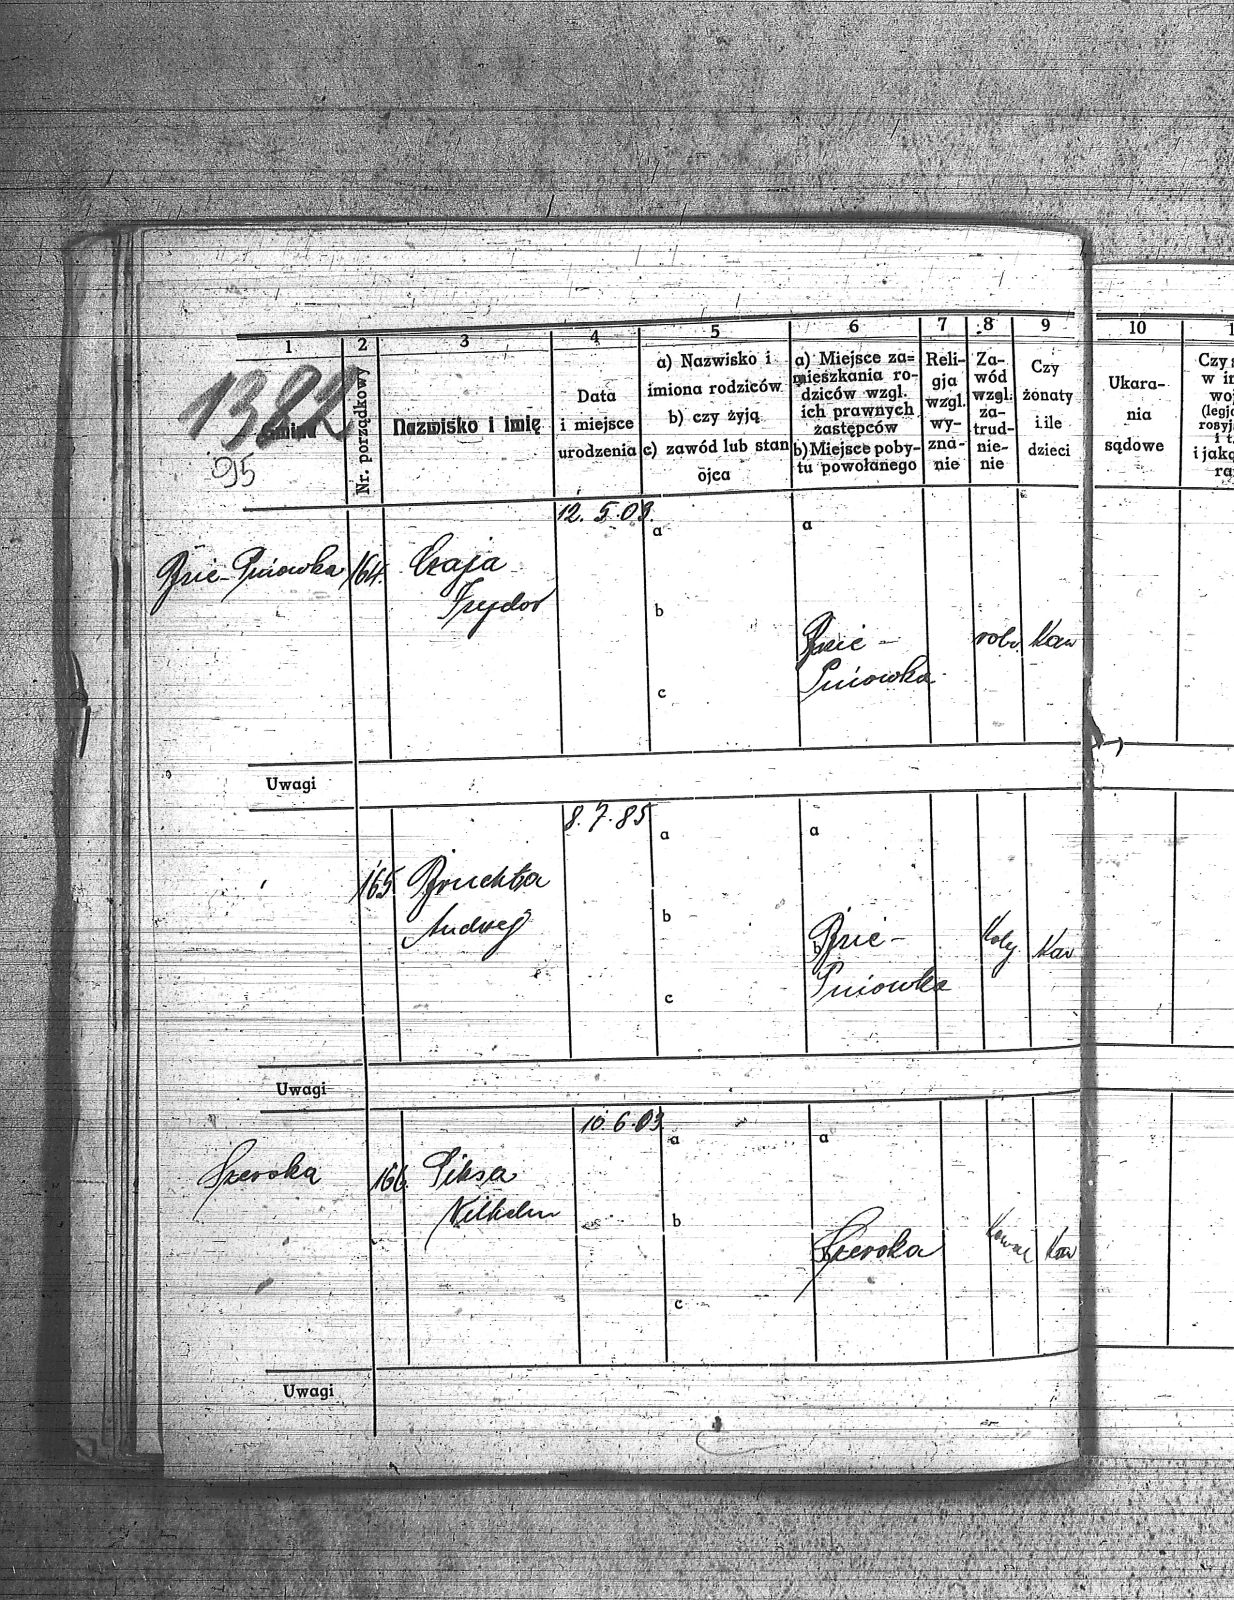 1 2 3 4 5 6 7 8 9 10
1382
Gmina
95
Nr. porządkowy
Nazwisko i imię
Data
i miejsce
urodzenia
a) Nazwisko i
imiona rodziców
b) czy żyją
c) zawód lub stan
ojca
a) Miejsce za=
mieszkania ro-
dziców wzgl.
ich prawnych
zastępców
b) Miejsce poby-
tu powołanego
Reli-
gja
wzgl.
wy-
zna-
nie
Za-
wód
wzgl.
za-
trud-
nie-
nie
Czy
żonaty
i ile
dzieci
Ukara-
nia
sądowe
12. 5. 03.
a a
Bzie-Pniowka 164. Czaja
Izydor
b
Bzie-
Pniowka
robo. Kaw
c
Uwagi
8. 7. 85
a a
165. Brzuchta
Andrzej
b b
Bzie-
Pniowka
Kolej Kaw
c
Uwagi
10. 6. 03.
a a
Szeroka 166. Piksa
Wilhelm
b
Szeroka
Kowal Kaw
c
Uwagi